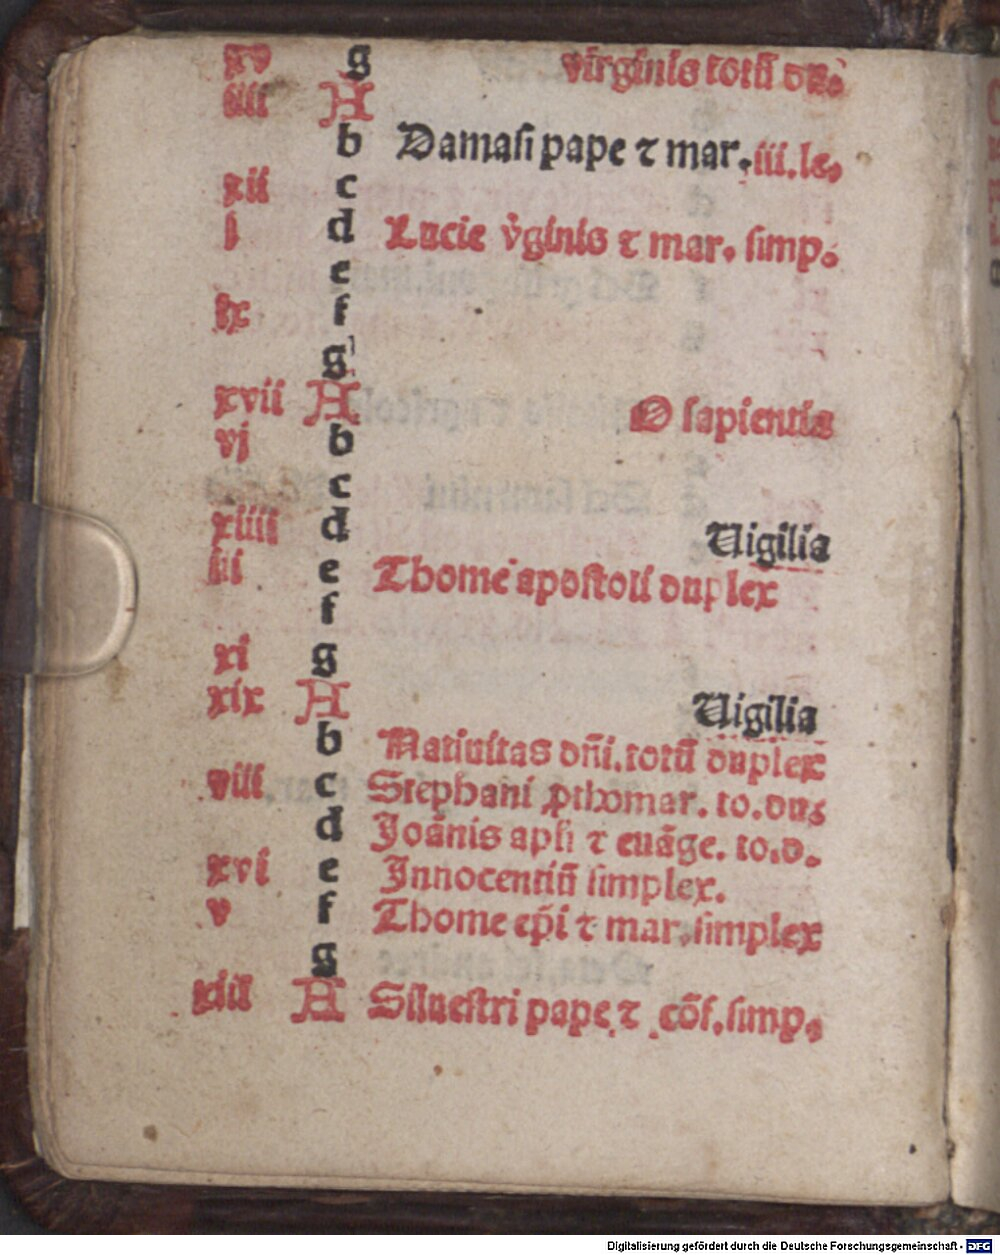 xv g virginis totū du.
iiii A
b Damasi pape ⁊ mar. iii. le.
xii c
i d Lucie v̓ginis ⁊ mar. simp.
e
ix f
g
xvii A O sapientia
vi b
c
xiiii d Uigilia
iii e Thome apostoli duplex
f
xi g
xix A Uigilia
b Natiuitas dn̄i. totū duplex
viii c Stephani ꝓthomar. to. du.
d Joānis apli ⁊ euāge. to. d.
xvi e Innocentiū simplex.
v f Thome ep̄i ⁊ mar. simplex
g
xiii A Siluestri pape ⁊ cōf. simp.
Digitalisierung gefördert durch die Deutsche Forschungsgemeinschaft - DFG